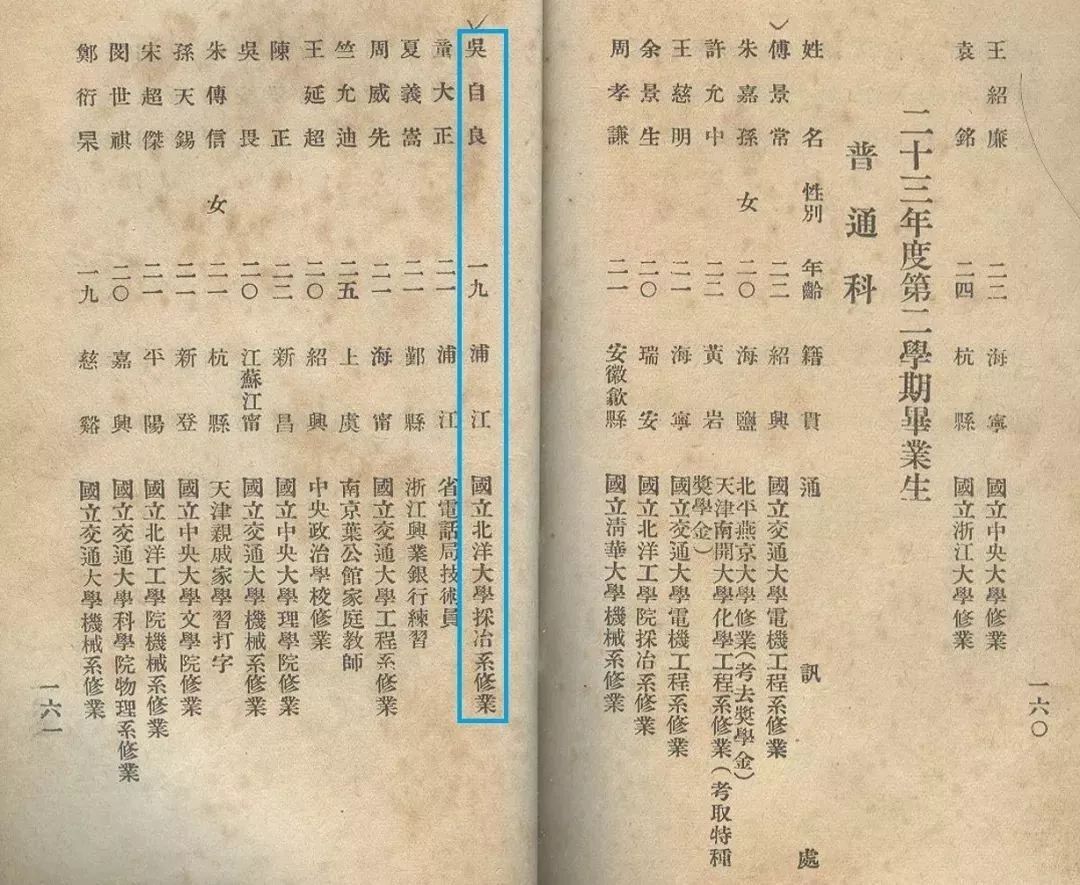 王紹廉 二二 海寧 國立中央大學修業
袁銘 二四 杭縣 國立浙江大學修業
二十三年度第二學期畢業生
普通科
姓名 性別 年齡 籍貫 通訊處
傅景常 二二 紹興 國立交通大學電機工程系修業
朱嘉孫 女 二〇 海鹽 北平燕京大學修業(考去獎學金)
許允中 二二 黃岩 天津南開大學化學工程系修業(考取特種獎學金)
王慈明 二一 海寧 國立交通大學電機工程系修業
余景生 二〇 瑞安 國立北洋工學院採冶系修業
周孝謙 二一 安徽歙縣 國立清華大學機械系修業
一六〇
吳自良 一九 浦江 國立北洋大學採冶系修業
童大正 二一 浦江 省電話局技術員
夏義嵩 二一 鄞縣 浙江興業銀行練習
周威先 二一 海甯 國立交通大學工程系修業
竺允迪 二五 上虞 南京葉公館家庭教師
王延超 二〇 紹興 中央政治學校修業
陳正 二二 新昌 國立中央大學理學院修業
吳畏 二〇 江蘇江甯 國立交通大學機械系修業
朱傳信 女 二一 杭縣 天津親戚家學習打字
孫天錫 二一 新登 國立中央大學文學院修業
宋超傑 二一 平陽 國立北洋工學院機械系修業
閔世祺 二〇 嘉興 國立交通大學科學院物理系修業
鄭衍杲 一九 慈谿 國立交通大學機械系修業
一六一